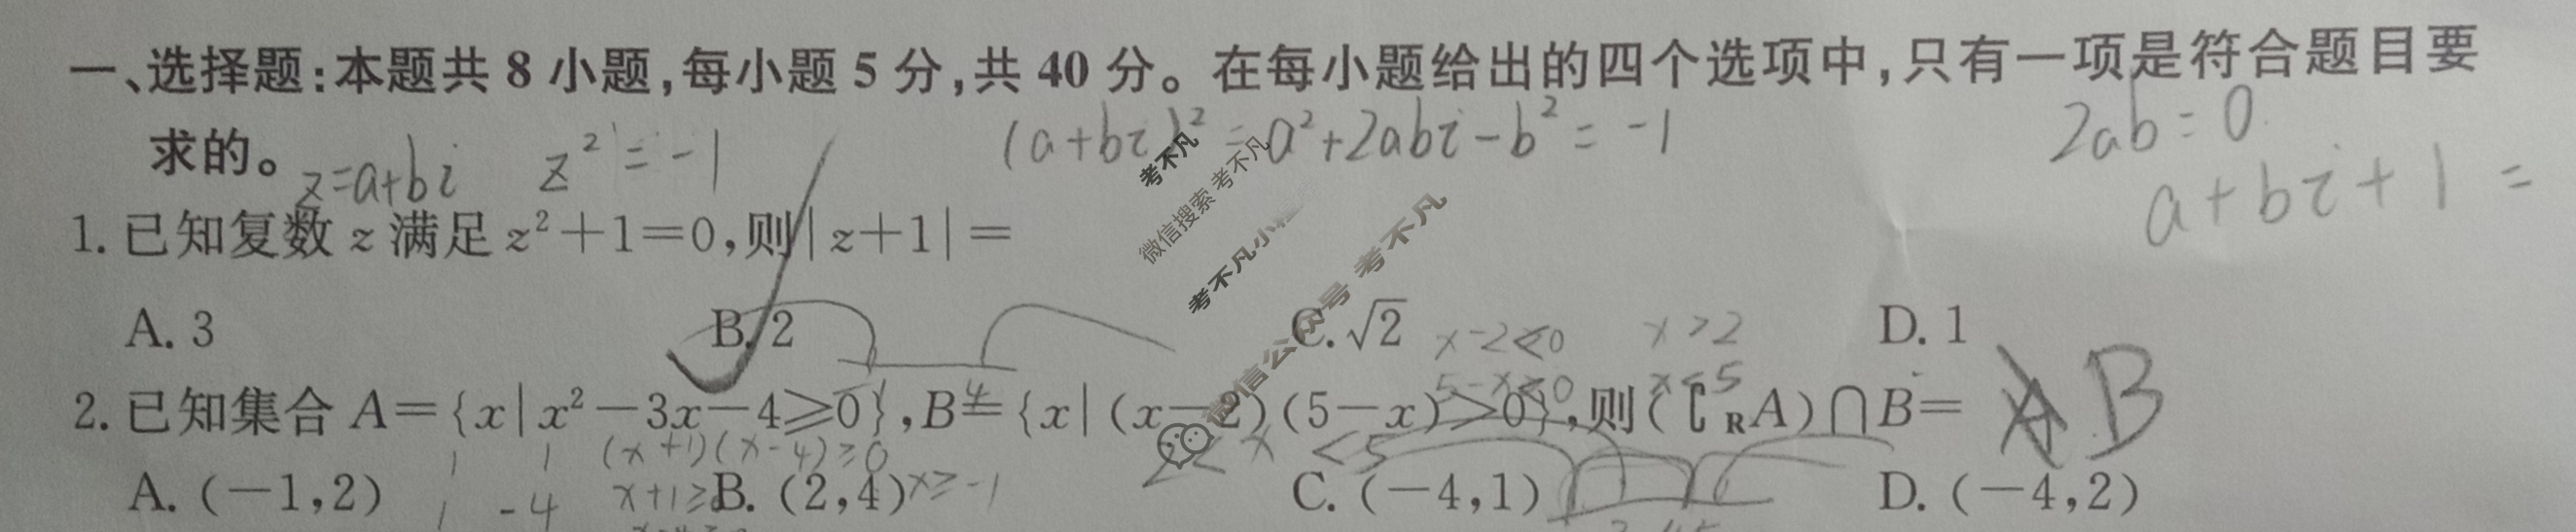 一、选择题:本题共 8 小题,每小题 5 分,共 40 分。在每小题给出的四个选项中,只有一项是符合题目要
求的。
z=a+bi z²=-1 (a+bi)²=a²+2abi-b²=-1 2ab=0
a+bi+1=
1. 已知复数 z 满足 z²+1=0,则|z+1|=
A. 3 B. 2 C. √2 D. 1
x-2<0 x>2
5-x<0 x<5
2. 已知集合 A={x|x²-3x-4≥0},B={x|(x-2)(5-x)>0},则(∁RA)∩B= A B
(x+1)(x-4)≥0 2<x<5
1 1
A. (-1,2) B. (2,4) C. (-4,1) D. (-4,2)
1 -4 x+1≥0 x≥-1
考不凡
微信搜索 考不凡
考不凡小程序
微信公众号 考不凡